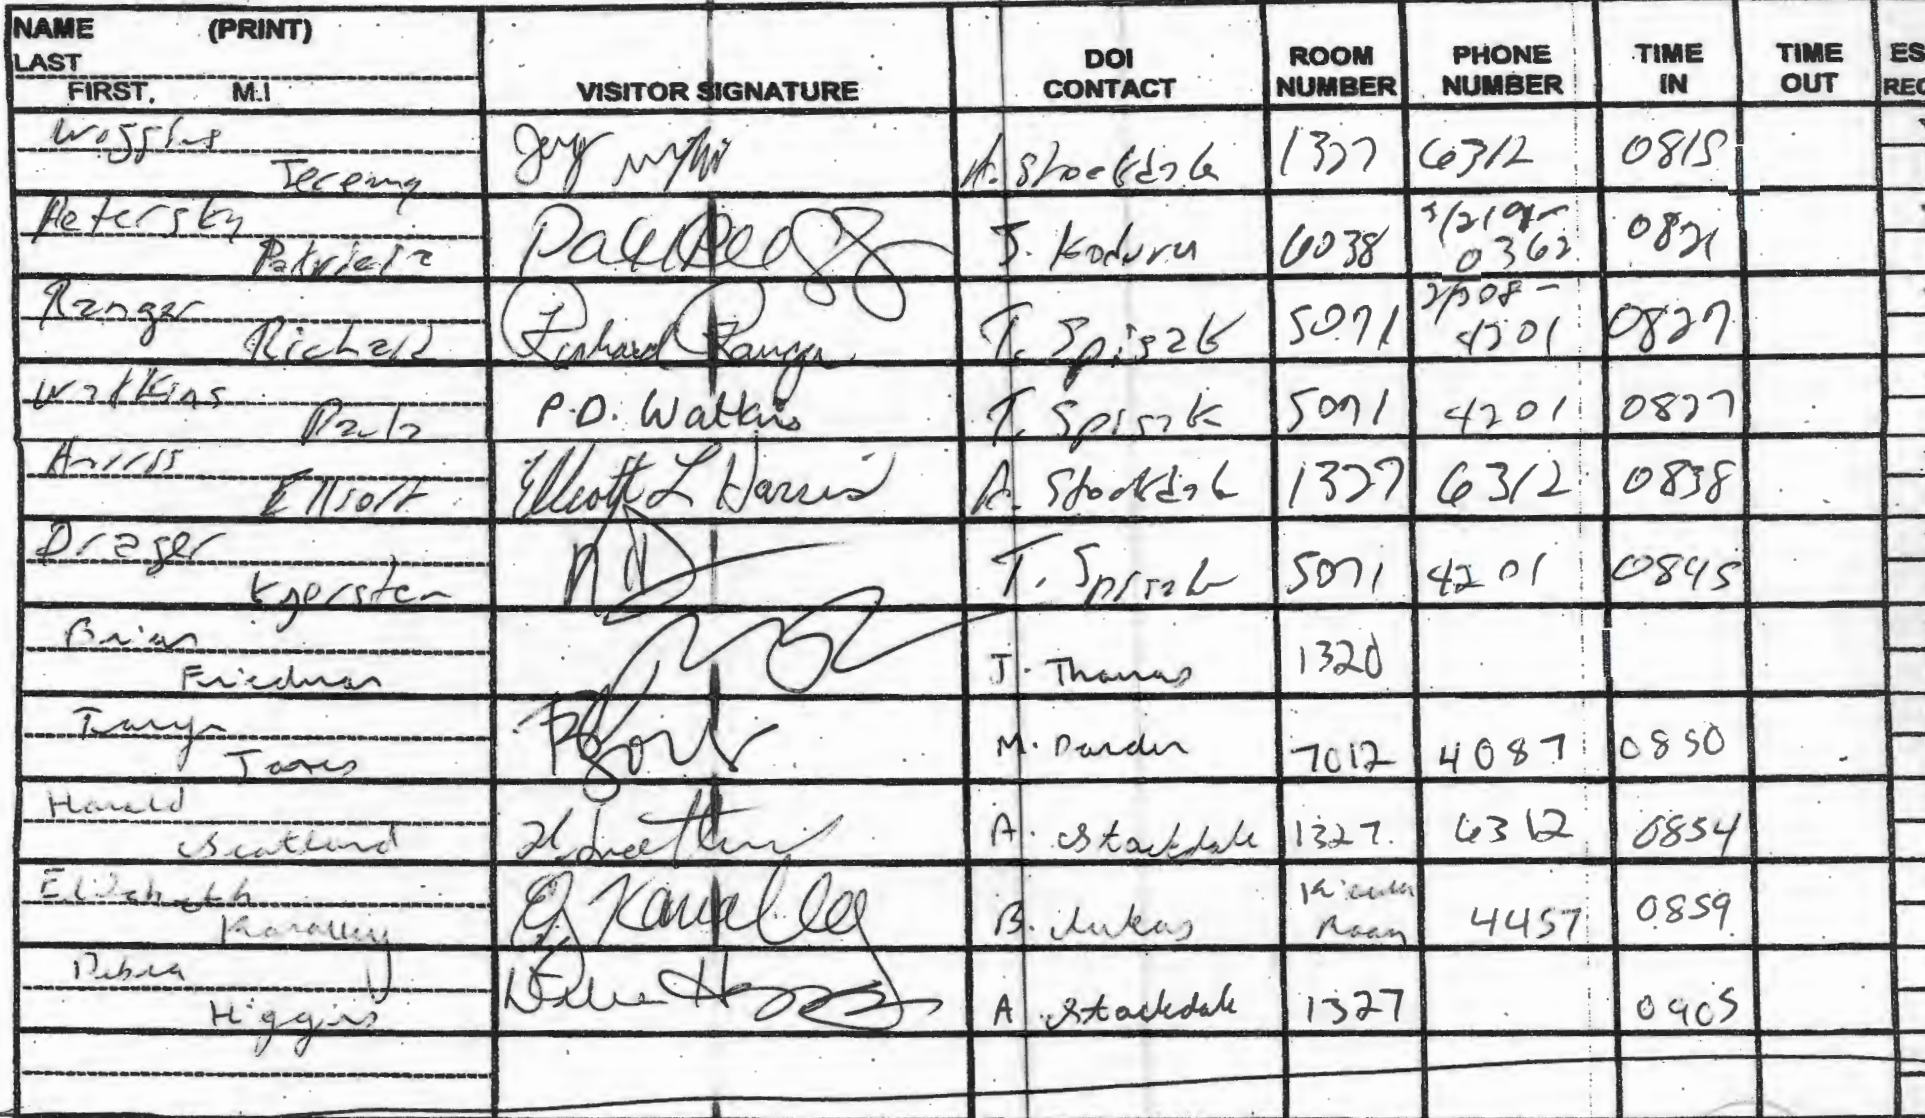 NAME (PRINT)
LAST
FIRST, M.I
VISITOR SIGNATURE
DOI CONTACT
ROOM NUMBER
PHONE NUMBER
TIME IN
TIME OUT
ES
REC
Jeremy A. Stockdale 1327 6312 0815
Petersky
Patricia J. Koduru 6038 0362 0821
Ranger
Richard Richard Ranger T. Spisak 5071 4201 0827
Watkins
Paula P.D. Watkins T. Spisak 5071 4201 0827
Harris
Elliott Elliott L Harris A. Stockdale 1327 6312 0838
Drager
Kyersten T. Spisak 5071 4201 0845
Brian
Friedman J. Thomas 1320
Tanya
M. 7012 4087 0850
Harald
A. Stockdale 1327. 6312 0854
Elizabeth
B. Lukas Room 4457 0859
Debra
Higgins A Stockdale 1327 0905